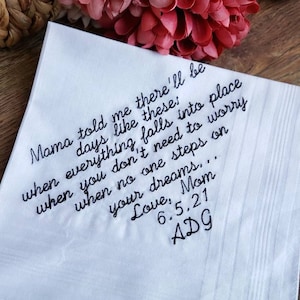 Mama told me there'll be
days like these;
when everything falls into place
when you don't need to worry
when no one steps on
your dreams...
Love, Mom
6.5.21
ADG